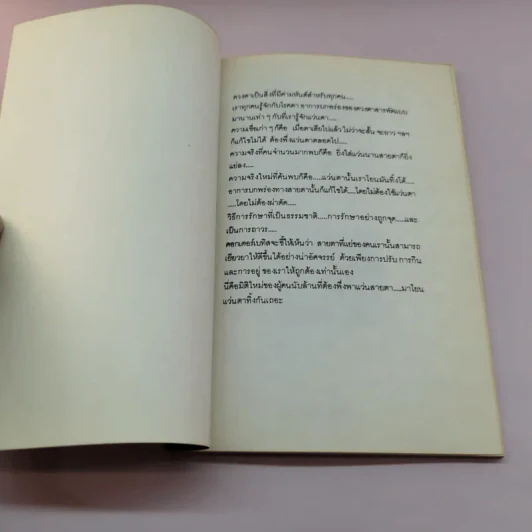 ดวงตาเป็นสิ่งที่มีค่ามหันต์สำหรับทุกคน.....
เราทุกคนรู้จักกับโรคตา อาการบกพร่องของดวงตาสารพัดแบบ
มานานเท่า ๆ กับที่เรารู้จักแว่นตา.....
ความเชื่อเก่า ๆ ก็คือ เมื่อตาเสียไปแล้ว ไม่ว่าจะสั้น จะยาว ฯลฯ
ก็แก้ไขไม่ได้ ต้องพึ่งแว่นตาตลอดไป.....
ความจริงที่คนจำนวนมากพบก็คือ ยิ่งใส่แว่นนานสายตาก็ยิ่ง
แย่ลง.....
ความจริงใหม่ที่ค้นพบก็คือ.....แว่นตานั้นเราโยนมันทิ้งได้.....
อาการบกพร่องทางสายตานั้นก็แก้ไขได้.....โดยไม่ต้องใช้แว่นตา
.....โดยไม่ต้องผ่าตัด.....
วิธีการรักษาที่เป็นธรรมชาติ.....การรักษาอย่างถูกจุด.....และ
เป็นการถาวร.....
ดอกเตอร์เบทิสจะชี้ให้เห็นว่า สายตาที่แย่ของคนเรานั้นสามารถ
เยียวยาให้ดีขึ้นได้อย่างน่าอัศจรรย์ ด้วยเพียงการปรับ การกิน
และการอยู่ ของเราให้ถูกต้องเท่านั้นเอง
นี่คือมิติใหม่ของผู้คนนับล้านที่ต้องพึ่งพาแว่นสายตา.....มาโยน
แว่นตาทิ้งกันเถอะ